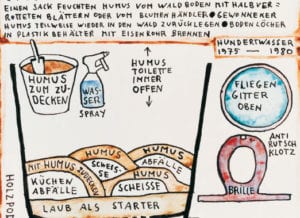 EINEN SACK FEUCHTEN HUMUS VOM WALDBODEN MIT HALBVER=
ROTTETEN BLÄTTERN ODER VOM BLUMENHÄNDLER
HUMUS TEILWEISE WIEDER IN DEN WALD ZURÜCKLEGEN • BODENLÖCHER
IN PLASTIKBEHÄLTER MIT EISENROHR BRENNEN
HUNDERTWASSER
1975 — 1980
HUMUS
ZUM ZU-
DECKEN
WAS-
SER
SPRAY
HUMUS
TOILETTE
IMMER
OFFEN
FLIEGEN
GITTER
OBEN
ANTI
RUTSCH
KLOTZ
BRILLE
HUMUS
ABFÄLLE
HUMUS
SCHEIS-
SE
MIT HUMUS ZUDECKEN
KÜCHEN
ABFÄLLE
HUMUS
SCHEISSE
LAUB ALS STARTER